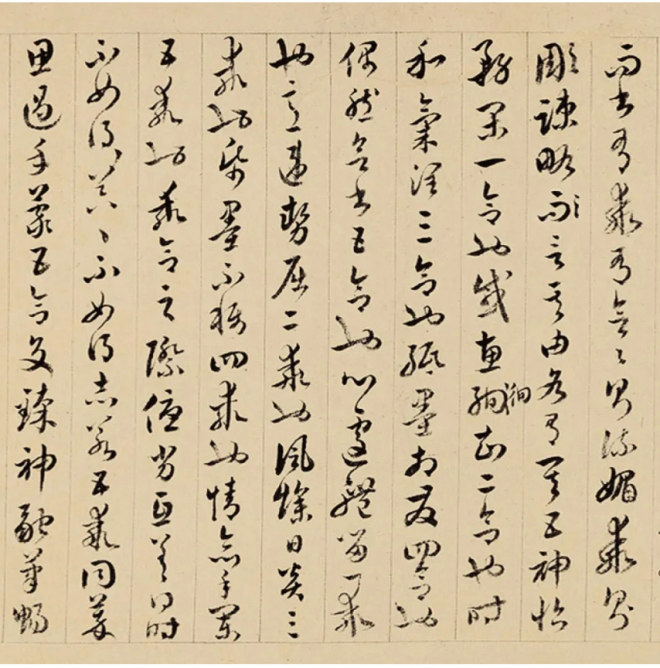 而書乍乖乍合〻則流媚乖則
彫疎略而言其由各有其五神怡
務閑一合也感惠徇知二合也時
和氣潤三合也紙墨相發四合也
偶然欲書五合也心遽體留一乖
也意違勢屈二乖也風燥日炎三
乖也紙墨不稱四乖也情怠手闌
五乖也乖合之際優劣互差得時
不如得器〻不如得志若五乖同萃
思遏手蒙五合交臻神融筆暢